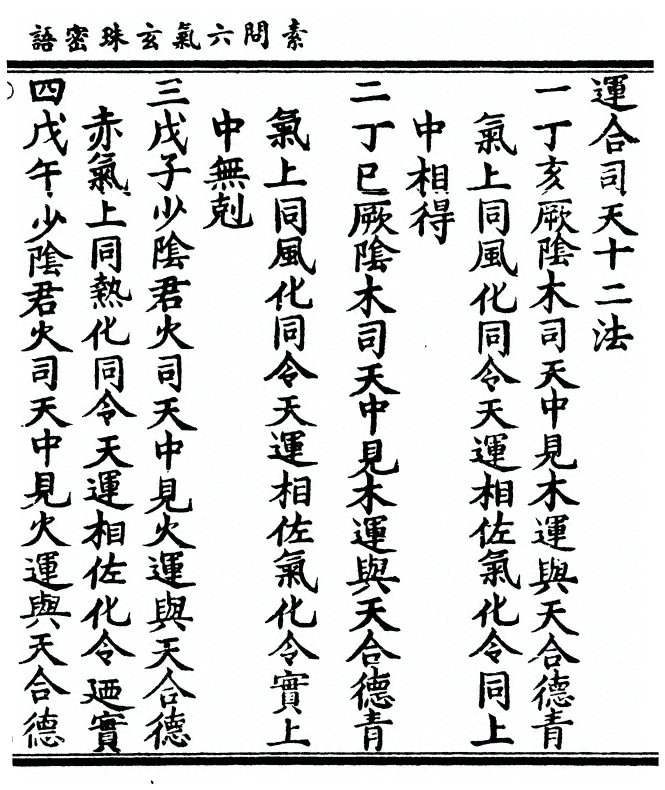 素問六氣玄珠密語
運合司天十二法
一丁亥厥陰木司天中見木運與天合德青
氣上同風化同令天運相佐氣化令同上
中相得
二丁巳厥陰木司天中見木運與天合德青
氣上同風化同令天運相佐氣化令實上
中無剋
三戊子少陰君火司天中見火運與天合德
赤氣上同熱化同令天運相佐化令廼實
四戊午少陰君火司天中見火運與天合德